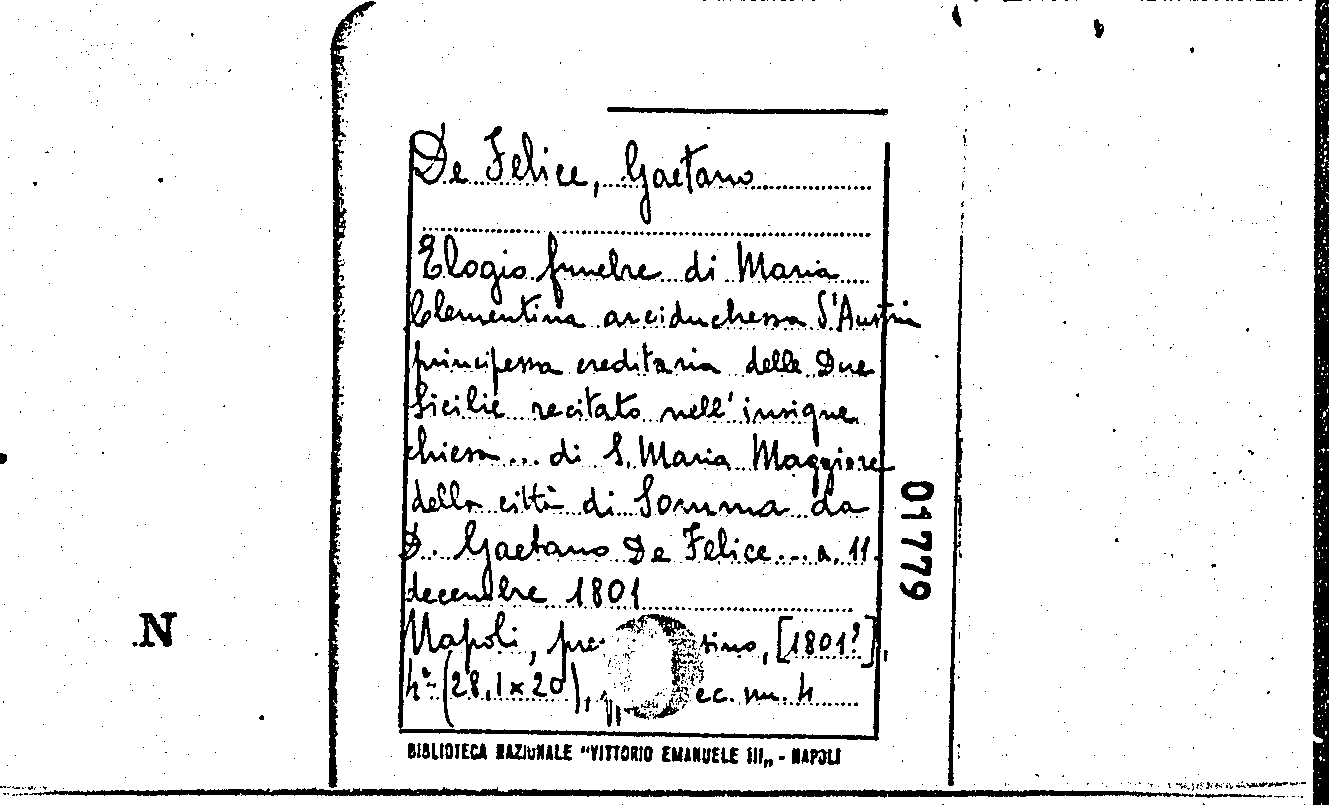 De Felice, Gaetano
Elogio funebre di Maria
Clementina arciduchessa d'Austria
principessa ereditaria delle Due
Sicilie recitato nell'insigne
chiesa... di S. Maria Maggiore
della città di Somma da
D. Gaetano De Felice... a. 11
decembre 1801
Napoli, [1801?],
4º (28,1x20), nn. 4
01779
N
BIBLIOTECA NAZIONALE "VITTORIO EMANUELE III„ - NAPOLI